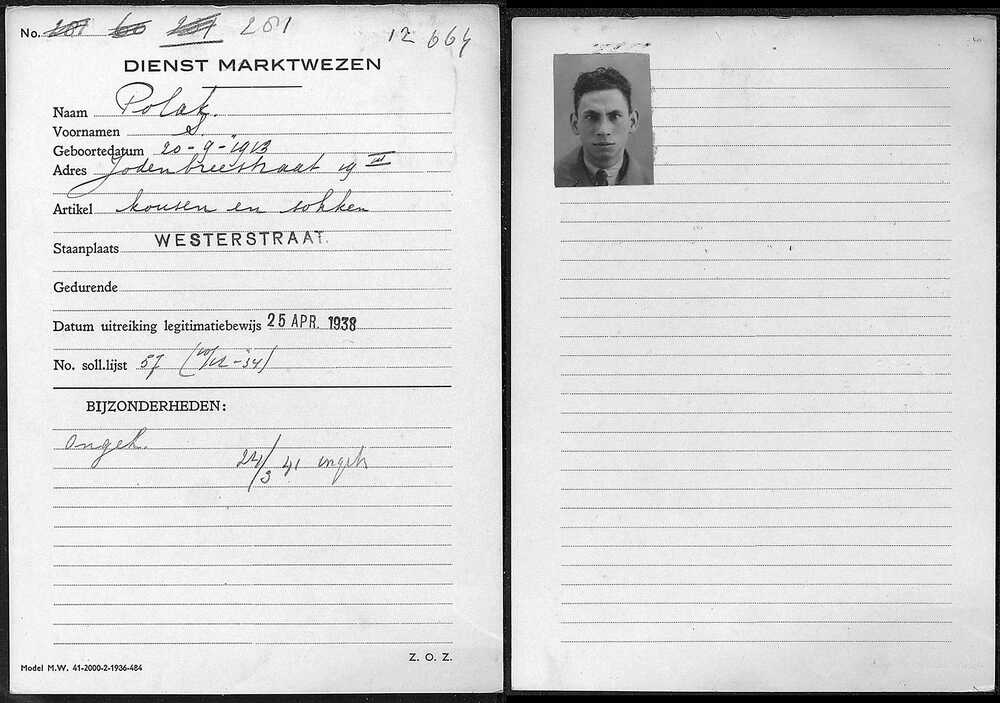 No. 201 60 201 201
12 664
DIENST MARKTWEZEN
Naam Polak.
Voornamen S.
Geboortedatum 20-9-1913
Adres Jodenbreestraat 19 III
Artikel kousen en sokken
Staanplaats WESTERSTRAAT.
Gedurende
Datum uitreiking legitimatiebewijs 25 APR. 1938
No. soll.lijst 57
BIJZONDERHEDEN:
Ongeh.
24/3 41 ongeh
Z. O. Z.
Model M.W. 41-2000-2-1936-484